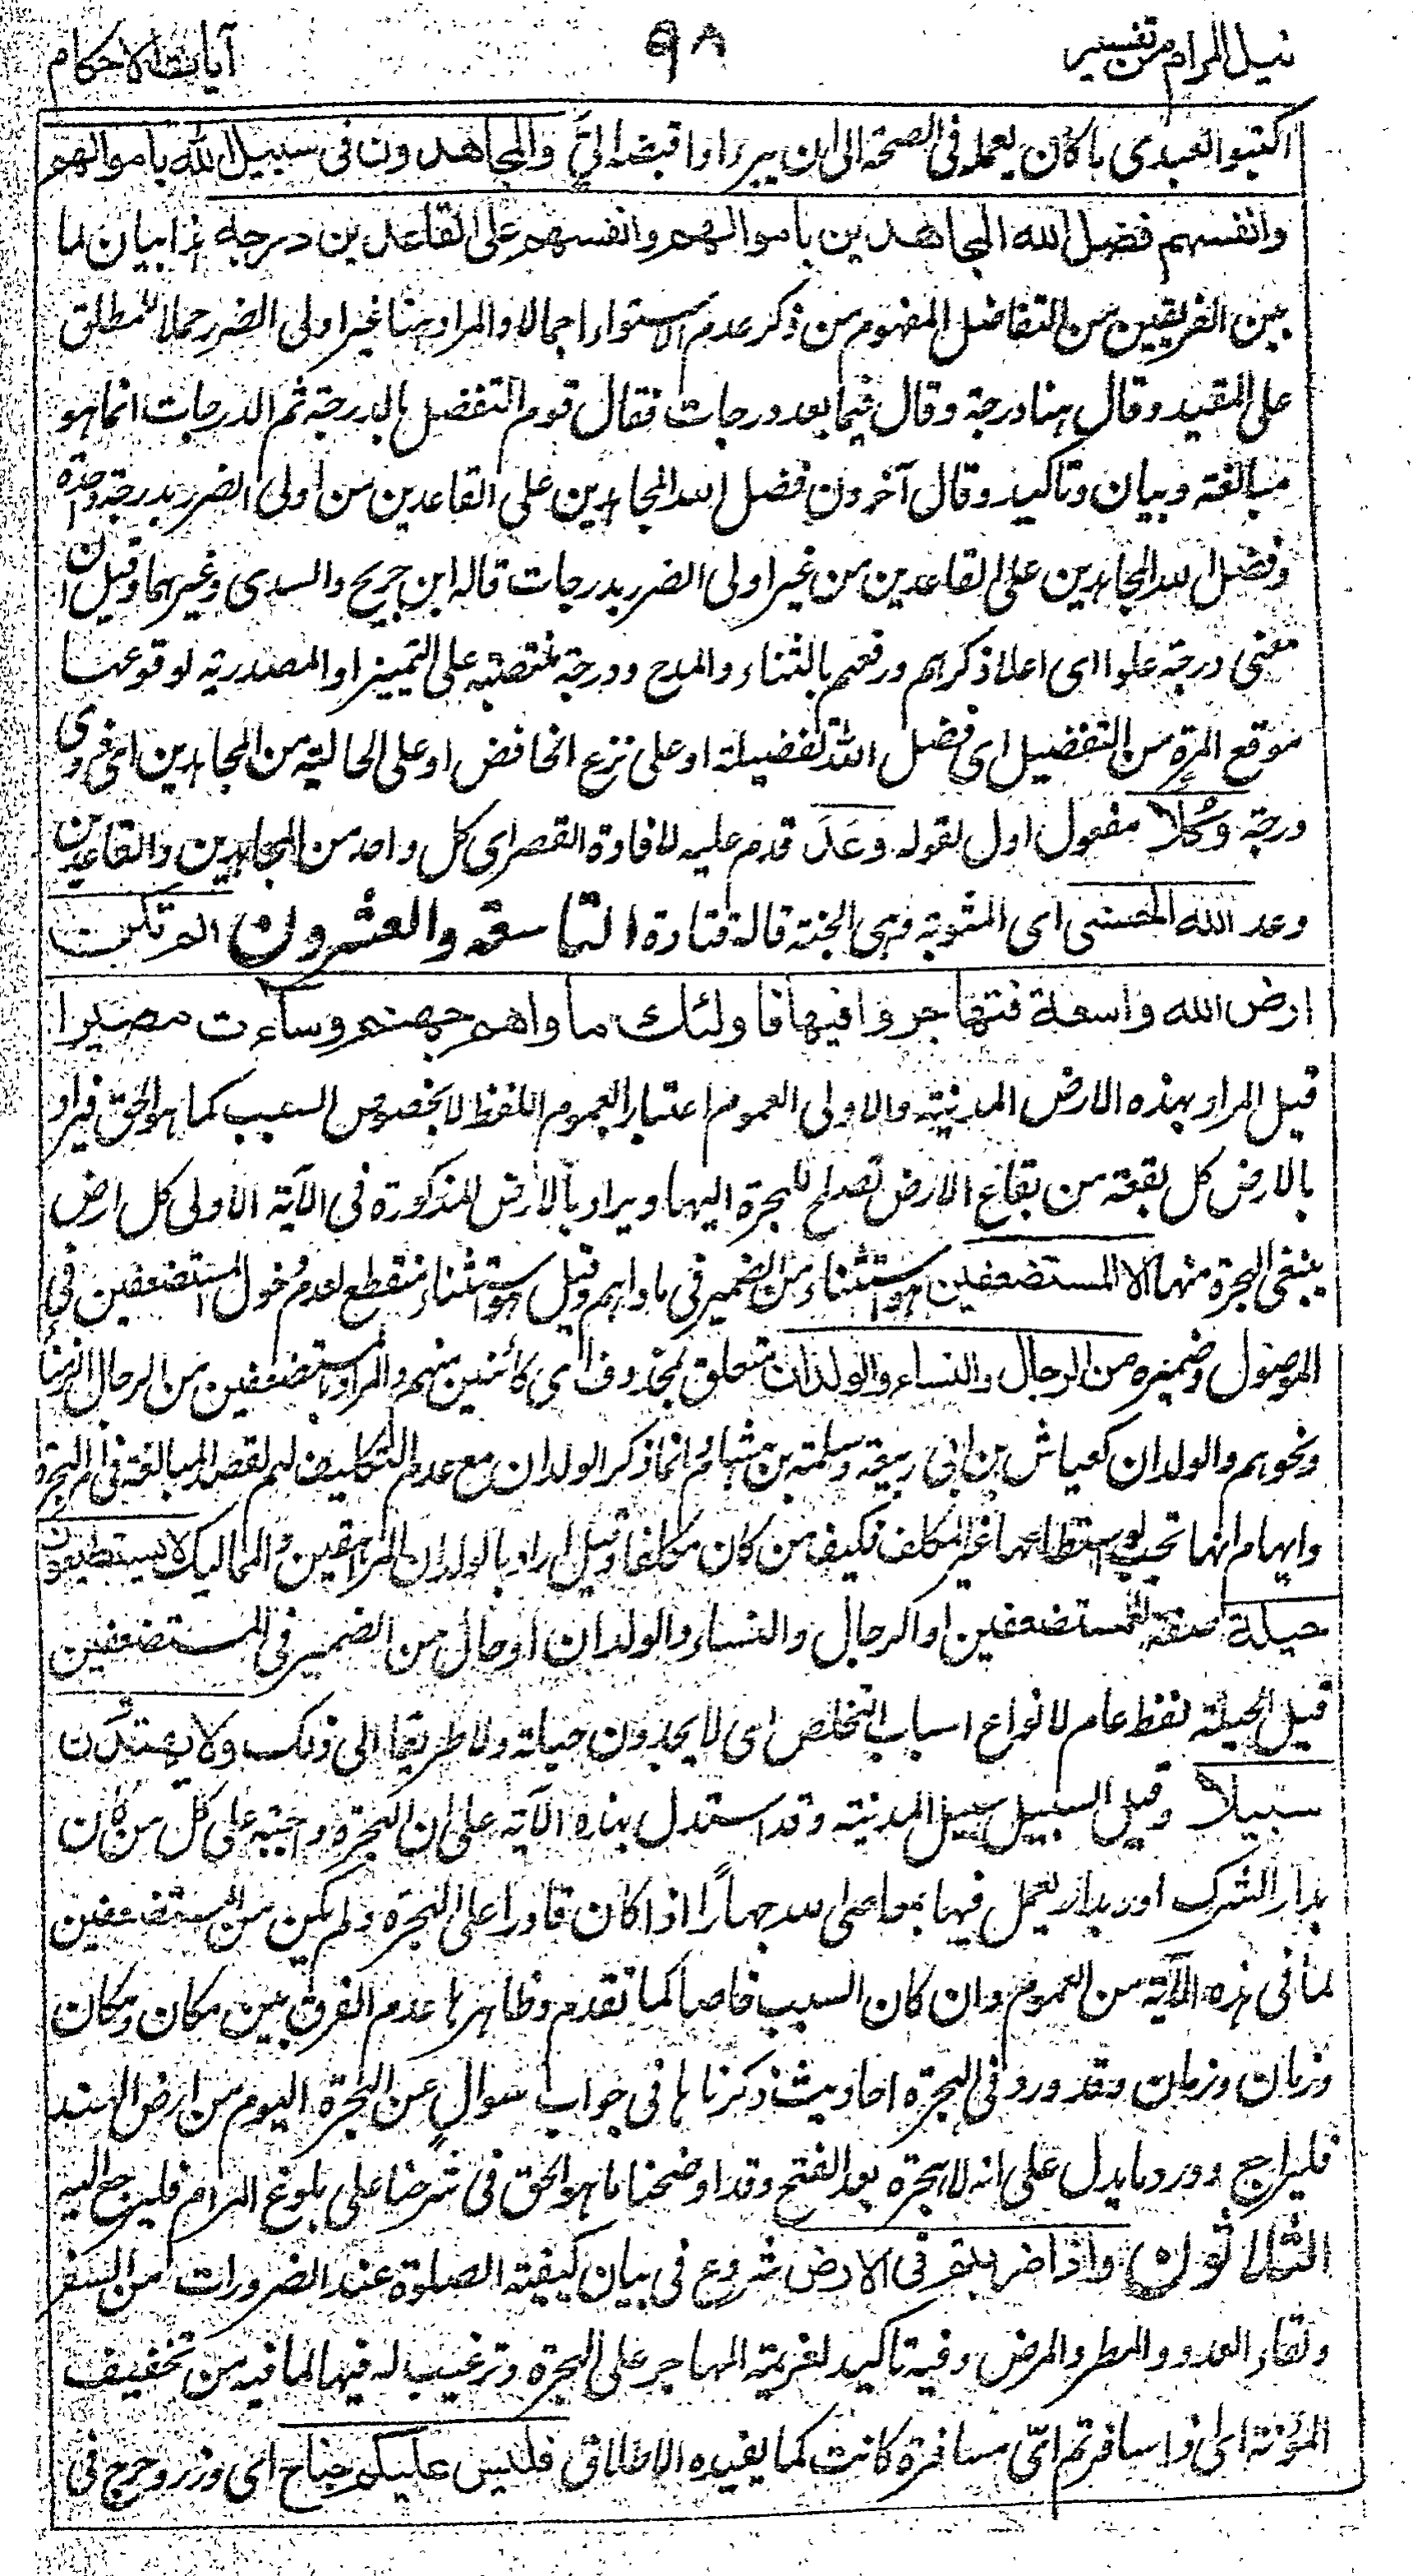 نيل المرام من تفسير
٩٨
آيات الاحكام
اكتبوا لعبدى ما كان يعمله فى الصحة الى ان يبرأ او اقبضه الىّ والمجاهدون فى سبيل الله باموالهم
وانفسهم فضل الله المجاهدين باموالهم وانفسهم على القاعدين درجة هذا بيان لما
بين الفريقين من التفاضل المفهوم من ذكر عدم الاستواء اجمالا والمراد هنا غير اولى الضرر حملا للمطلق
على المقيد وقال هنا درجة وقال فيما بعد درجات فقال قوم التفضل بالدرجة ثم الدرجات انما هو
مبالغة وبيان وتاكيد وقال آخرون فضل الله المجاهدين على القاعدين من اولى الضرر بدرجة واحدة
وفضل الله المجاهدين على القاعدين من غير اولى الضرر بدرجات قاله ابن جريج والسدى وغيرهما وقيل ان
معنى درجة علوا اى اعلا ذكرهم ورفعهم بالثناء والمدح ودرجة منتصبة على التمييز او المصدرية لوقوعها
موقع المرة من التفضيل اى فضل الله تفضيلة او على نزع الخافض او على الحالية من المجاهدين اى ذوى
درجة وكُلّا مفعول اول لقوله وعَدَ قدم عليه لافادة القصر اى كل واحد من المجاهدين والقاعدين
وعد الله الحسنى اى المثوبة وهى الجنة قاله قتادة التاسعة والعشرون الم تكن
ارض الله واسعة فتهاجروا فيها فاولئك ماواهم جهنم وساءت مصيرا
قيل المراد بهذه الارض المدينة والاولى العموم اعتبارا بعموم اللفظ لا بخصوص السبب كما هو الحق فيراد
بالارض كل بقعة من بقاع الارض تصلح للهجرة اليها ويراد بالارض المذكورة فى الآية الاولى كل ارض
ينبغى الهجرة منها الا المستضعفين هو استثناء من الضمير فى ماواهم وقيل هو استثناء منقطع لعدم دخول المستضعفين فى
الموصول وضميره من الرجال والنساء والولدان متعلق بمحذوف اى كائنين منهم والمراد بالمستضعفين من الرجال الزمنا
ونحوهم والولدان كعياش بن ابى ربيعة وسلمة بن هشام وانما ذكر الولدان مع عدم التكليف لهم لقصد المبالغة فى امر الهجرة
وايهام انها تجب لو استطاعها غير المكلف فكيف من كان مكلفا وقيل اراد بالولدان المراهقين والمماليك لا يستطيعون
حيلة صفة للمستضعفين او الرجال والنساء والولدان او حال من الضمير فى المستضعفين
قيل الحيلة لفظ عام لانواع اسباب التخلص اى لا يجدون حيلة ولا طريقا الى ذلك ولا يهتدون
سبيلا وقيل السبيل سبيل المدينة وقد استدل بهذه الآية على ان الهجرة واجبة على كل من كان
بدار الشرك او بدار يعمل فيها بمعاصى الله جهارًا اذا كان قادرا على الهجرة ولم يكن من المستضعفين
لما فى هذه الآية من العموم وان كان السبب خاصا كما تقدم وظاهرها عدم الفرق بين مكان ومكان
وزمان وزمان وقد ورد فى الهجرة احاديث ذكرناها فى جواب سوال عن الهجرة اليوم من ارض الهند
فليراجع وورد ما يدل على انه لا هجرة بعد الفتح وقد اوضحنا ما هو الحق فى شرحنا على بلوغ المرام فليرجع اليه
الثلاثون واذا ضربتم فى الارض شروع فى بيان كيفية الصلوة عند الضرورات من السفر
ولقاء العدو والمطر والمرض وفيه تاكيد لعزيمة المهاجر على الهجرة وترغيب له فيها لما فيه من تخفيف
المؤنة اى اذا سافرتم اىّ مسافرة كانت كما يفيده الاطلاق فليس عليكم جناح اى وزر وحرج فى